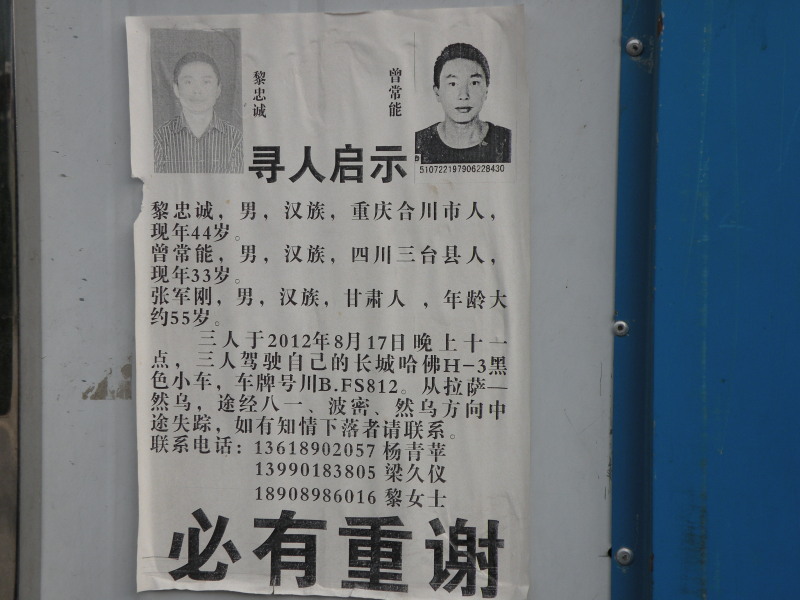 黎忠诚
曾常能
510722197906228430
寻人启示
黎忠诚，男，汉族，重庆合川市人，
现年44岁。
曾常能，男，汉族，四川三台县人，
现年33岁。
张军刚，男，汉族，甘肃人 ，年龄大
约55岁。
三人于2012年8月17日晚上十一
点，三人驾驶自己的长城哈佛H-3黑
色小车，车牌号川B.FS812。从拉萨—
然乌，途经八一、波密、然乌方向中
途失踪，如有知情下落者请联系。
联系电话：13618902057 杨青苹
13990183805 梁久仪
18908986016 黎女士
必有重谢